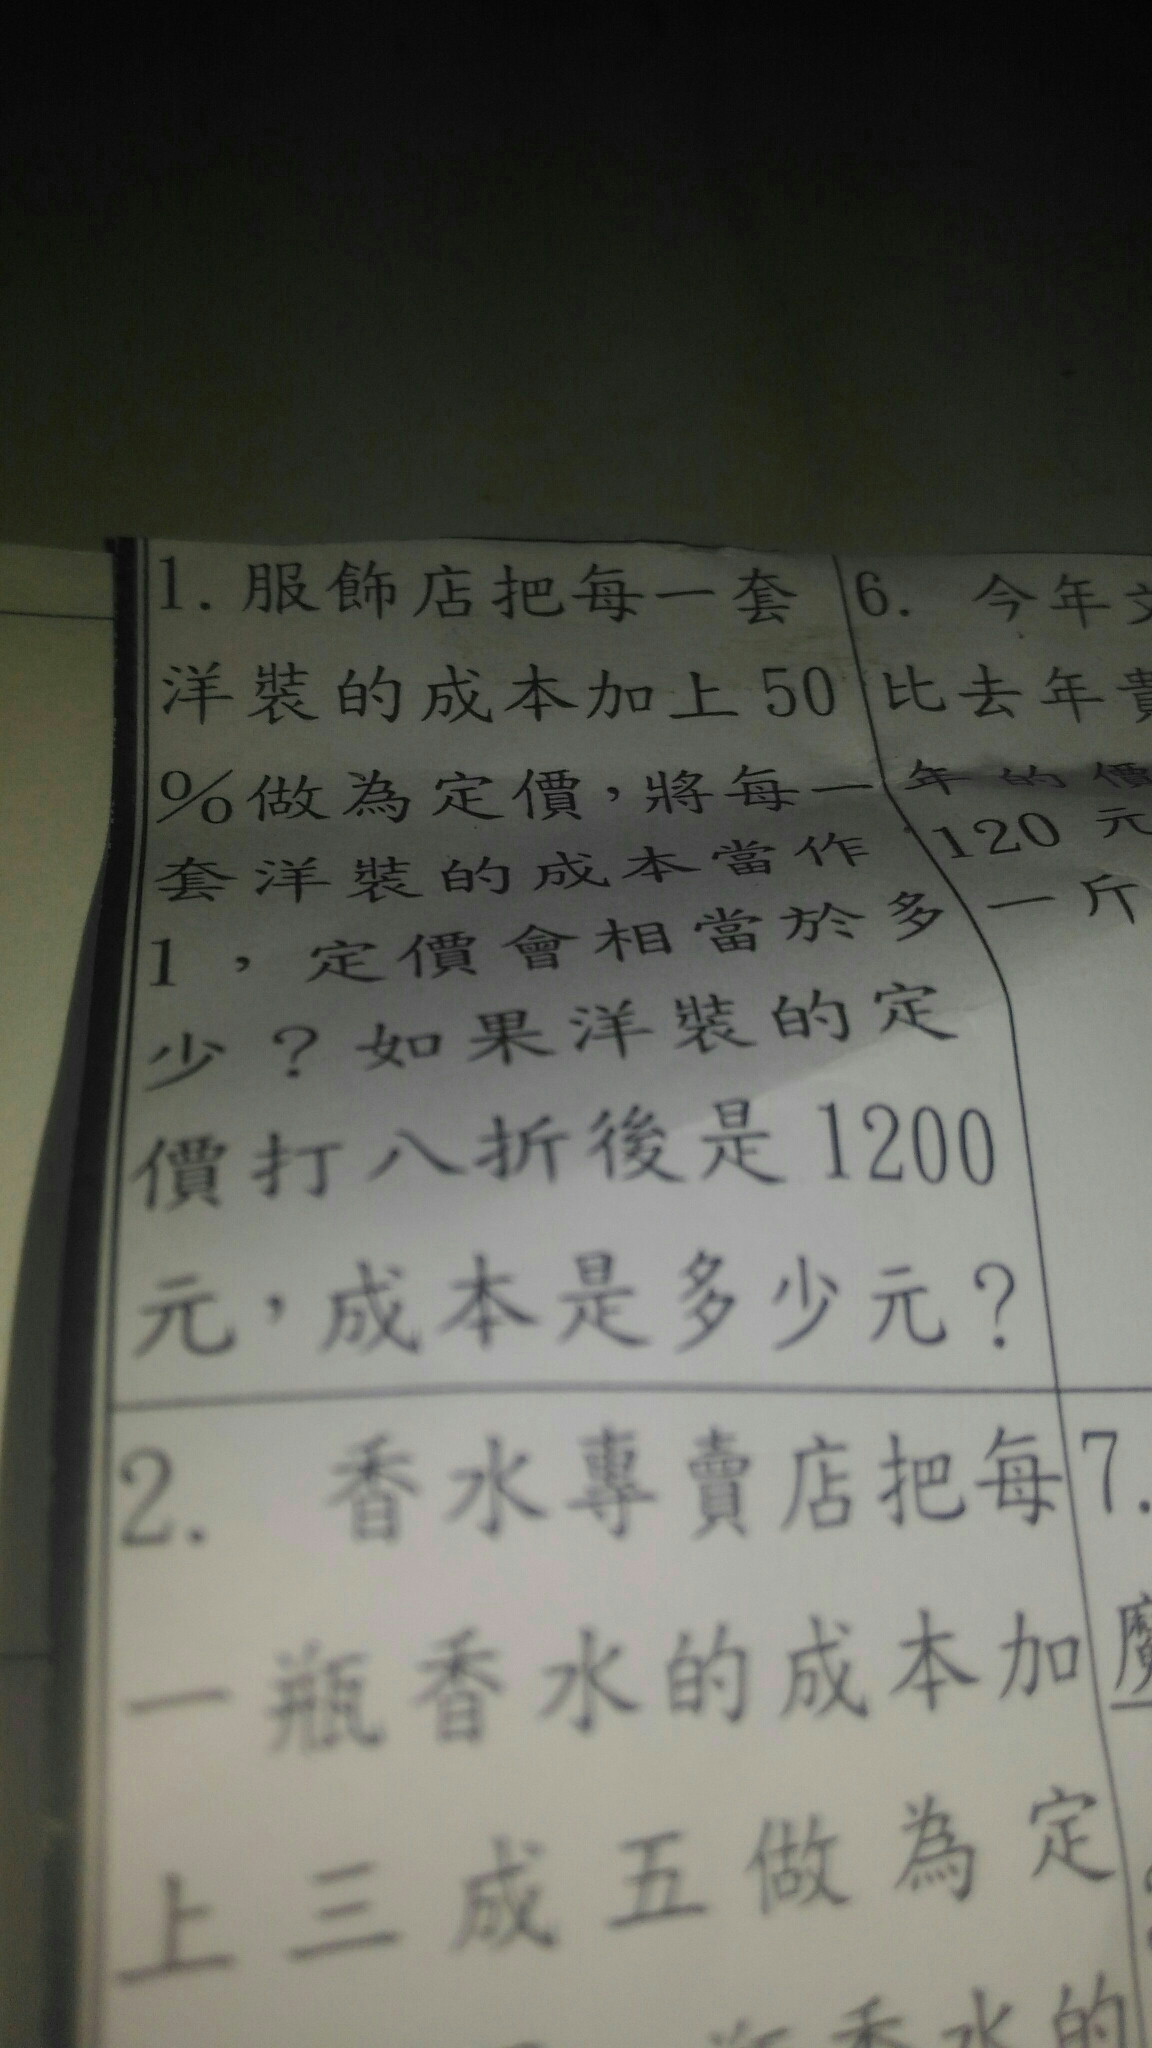 1. 服飾店把每一套
洋裝的成本加上50
%做為定價，將每一
套洋裝的成本當作
1，定價會相當於多
少？如果洋裝的定
價打八折後是1200
元，成本是多少元？
2. 香水專賣店把每
一瓶香水的成本加
上三成五做為定
瓶香水的
6. 今年
比去年貴
年的價
120元
一斤
7.